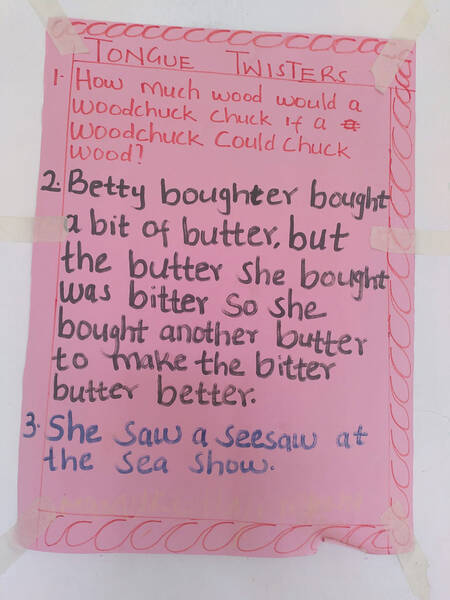 TONGUE TWISTERS
1. How much wood would a
woodchuck chuck if a
woodchuck could chuck
wood?
2. Betty boughter bought
a bit of butter, but
the butter she bought
was bitter so she
bought another butter
to make the bitter
butter better.
3. She saw a seesaw at
the sea show.